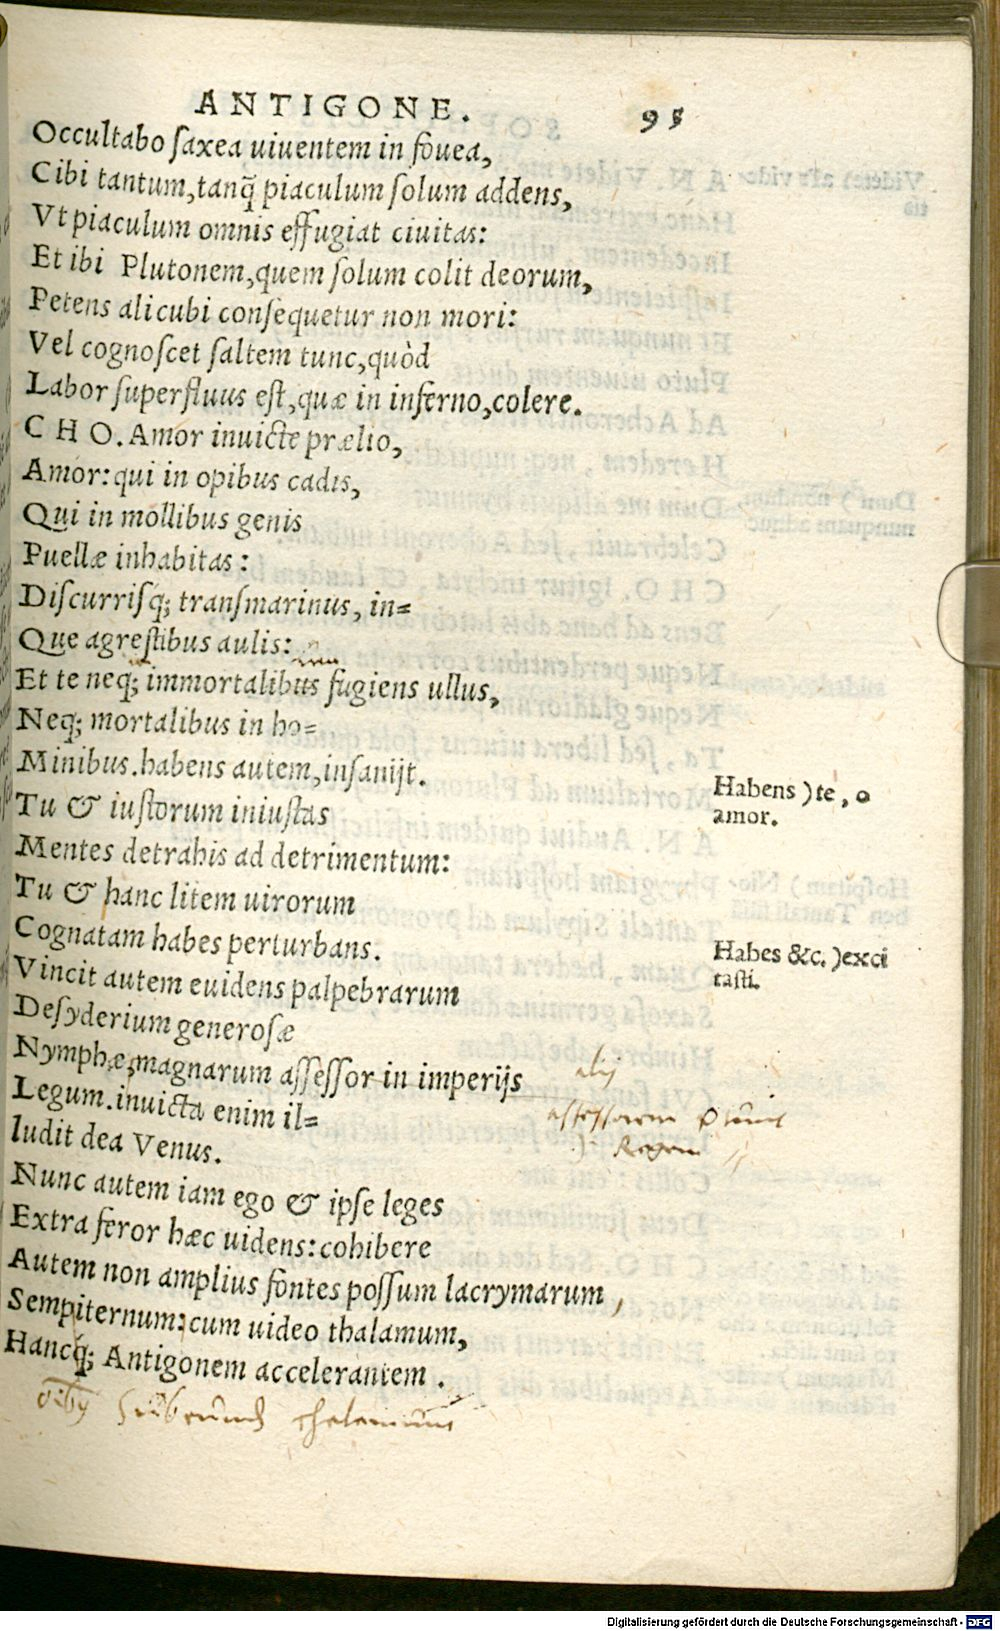 ANTIGONE. 95
Occultabo ſaxea uiuentem in fouea,
Cibi tantum, tanq̃ piaculum ſolum addens,
Vt piaculum omnis effugiat ciuitas:
Et ibi Plutonem, quem ſolum colit deorum,
Petens alicubi conſequetur non mori:
Vel cognoſcet ſaltem tunc, quòd
Labor ſuperfluus eſt, quæ in inferno, colere.
CHO. Amor inuicte prælio,
Amor: qui in opibus cadis,
Qui in mollibus genis
Puellæ inhabitas:
Diſcurriſq; tranſmarinus, in=
Que agreſtibus aulis:
Et te neq; immortalibus fugiens ullus,
Neq; mortalibus in ho=
Minibus. habens autem, inſanijt.
Habens ) te, o
amor.
Tu & iuſtorum iniuſtas
Mentes detrahis ad detrimentum:
Tu & hanc litem uirorum
Cognatam habes perturbans.
Habes &c. ) exci
taſti.
Vincit autem euidens palpebrarum
Deſyderium generoſæ
Nymphæ, magnarum aſſeſſor in imperijs
alij
aſſeſſorem
Regem
Legum. inuicta enim il=
ludit dea Venus.
Nunc autem iam ego & ipſe leges
Extra feror hæc uidens: cohibere
Autem non amplius fontes poſſum lacrymarum,
Sempiternum: cum uideo thalamum,
Hancq; Antigonem accelerantem.
thalamum
Digitalisierung gefördert durch die Deutsche Forschungsgemeinschaft - DFG